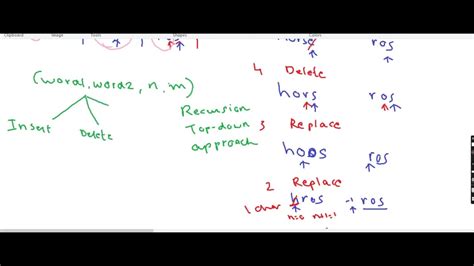 Clipboard Image Tools Shapes Colors
ros
ros
4 Delete
(word1, word2, n, m)
hors ros
Insert Delete
Recursion
Top-down
approach
3 Replace
hoos ros
2 Replace
1 char hros -1 ros
n=0